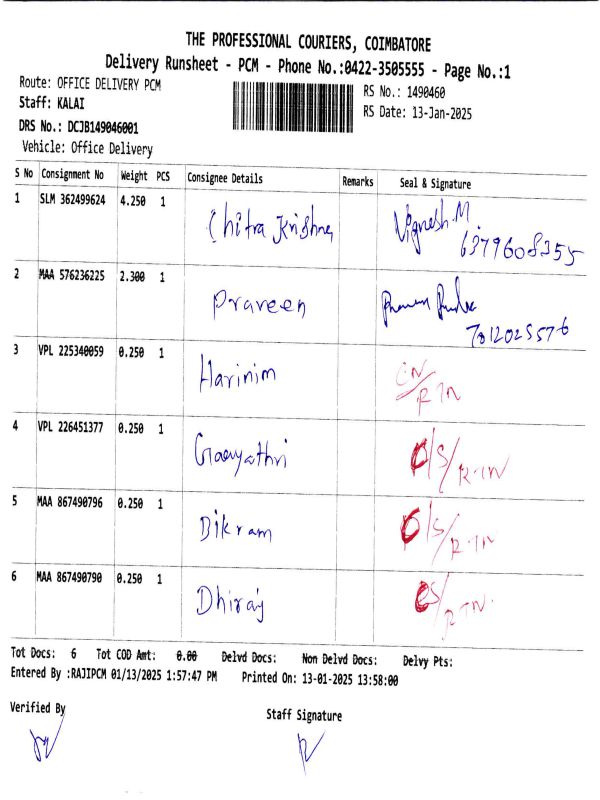 THE PROFESSIONAL COURIERS, COIMBATORE
Delivery Runsheet - PCM - Phone No.:0422-3505555 - Page No.:1
Route: OFFICE DELIVERY PCM
RS No.: 1490460
Staff: KALAI
RS Date: 13-Jan-2025
DRS No.: DCJB149046001
Vehicle: Office Delivery
S No Consignment No Weight PCS Consignee Details Remarks Seal & Signature
1 SLM 362499624 4.250 1 Chitra Krishna Vignesh.M
6379608355
2 MAA 576236225 2.300 1 Praveen
7812025576
3 VPL 225340059 0.250 1 Harinim CN/RTN
4 VPL 226451377 0.250 1 Gaayathri O/S/R-TN
5 MAA 867490796 0.250 1 Bikram O/S/R-TN
6 MAA 867490790 0.250 1 Dhiraj OS/RTN.
Tot Docs: 6 Tot COD Amt: 0.00 Delvd Docs: Non Delvd Docs: Delvy Pts:
Entered By :RAJIPCM 01/13/2025 1:57:47 PM Printed On: 13-01-2025 13:58:00
Verified By
Staff Signature